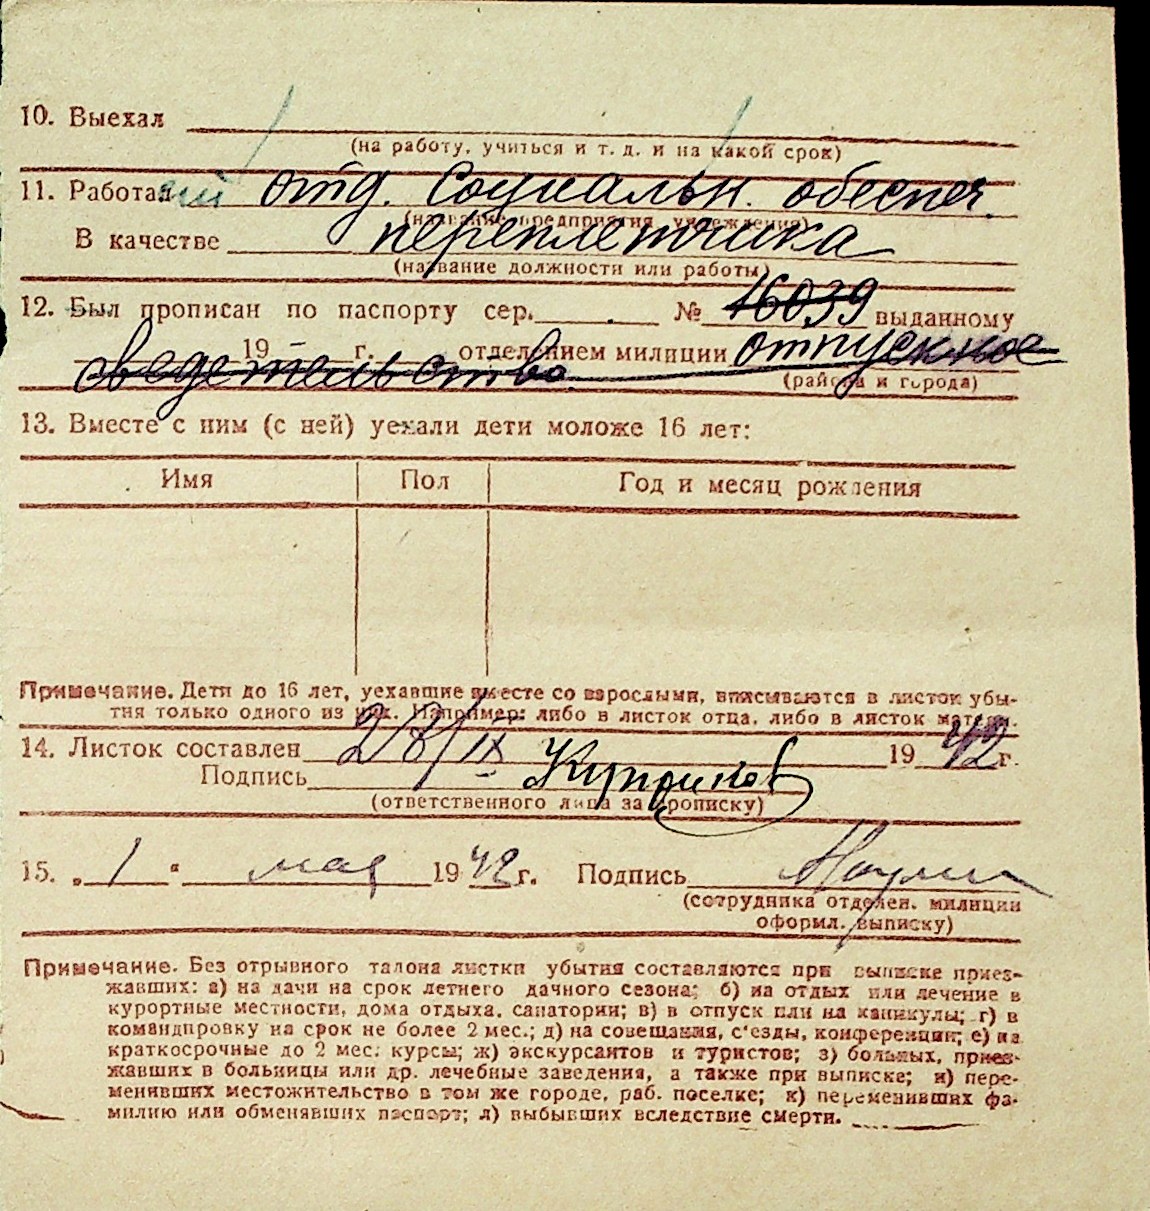 10. Выехал
(на работу, учиться и т. д. и на какой срок)
11. Работал отд. Социальн. обеспеч.
(название предприятия, учреждения)
В качестве переплетчика
(название должности или работы)
12. Был прописан по паспорту сер. № 16039 выданному
19 г. отделением милиции отпускное
сведетельство
(района и города)
13. Вместе с ним (с ней) уехали дети моложе 16 лет:
Имя Пол Год и месяц рождения
Примечание. Дети до 16 лет, уехавшие вместе со взрослыми, вписываются в листок убы-
тия только одного из них. Например: либо в листок отца, либо в листок матери.
14. Листок составлен 28/IX 1942 г.
Подпись
(ответственного лица за прописку)
15. „ 1 “ мая 1942 г. Подпись
(сотрудника отделен. милиции
оформл. выписку)
Примечание. Без отрывного талона листки убытия составляются при выписке приез-
жавших: а) на дачи на срок летнего дачного сезона; б) на отдых или лечение в
курортные местности, дома отдыха, санатории; в) в отпуск или на каникулы; г) в
командировку на срок не более 2 мес.; д) на совещания, с'езды, конференции; е) на
краткосрочные до 2 мес. курсы; ж) экскурсантов и туристов; з) больных, приез-
жавших в больницы или др. лечебные заведения, а также при выписке; и) пере-
менивших местожительство в том же городе, раб. поселке; к) переменивших фа-
милию или обменявших паспорт; л) выбывших вследствие смерти.